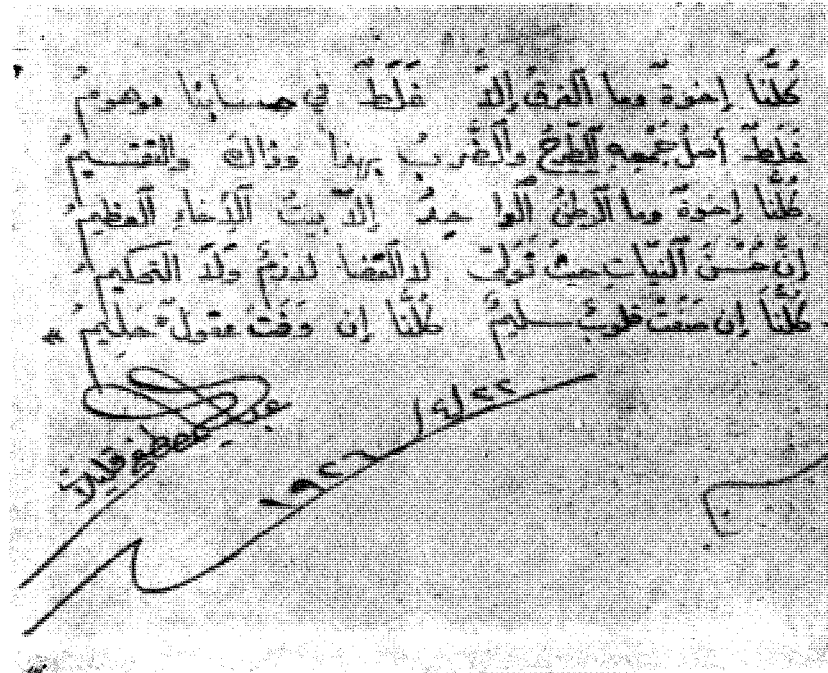 كُلُّنَا إخوةٌ وما الفرقُ إلَّا غَلَطٌ في حسابنا موهومُ
غَلَطٌ أصلُ جَمْعِهِ الطَّرحُ والضَّربُ بهذا وذاك والتقسيمُ
كُلُّنَا إخوةٌ وما الوطنُ الواحدُ إلَّا بيتُ الإخاءِ العظيمُ
إنَّ حُسْنَ النيَّاتِ حيثُ تَوَلَّى لا القضا لازمٌ ولا التحكيمُ
كُلُّنَا إن صَفَتْ قلوبٌ سليمٌ كُلُّنَا إن وَفَتْ عقولٌ حليمُ »
١٩٢٦/٤/٢٢